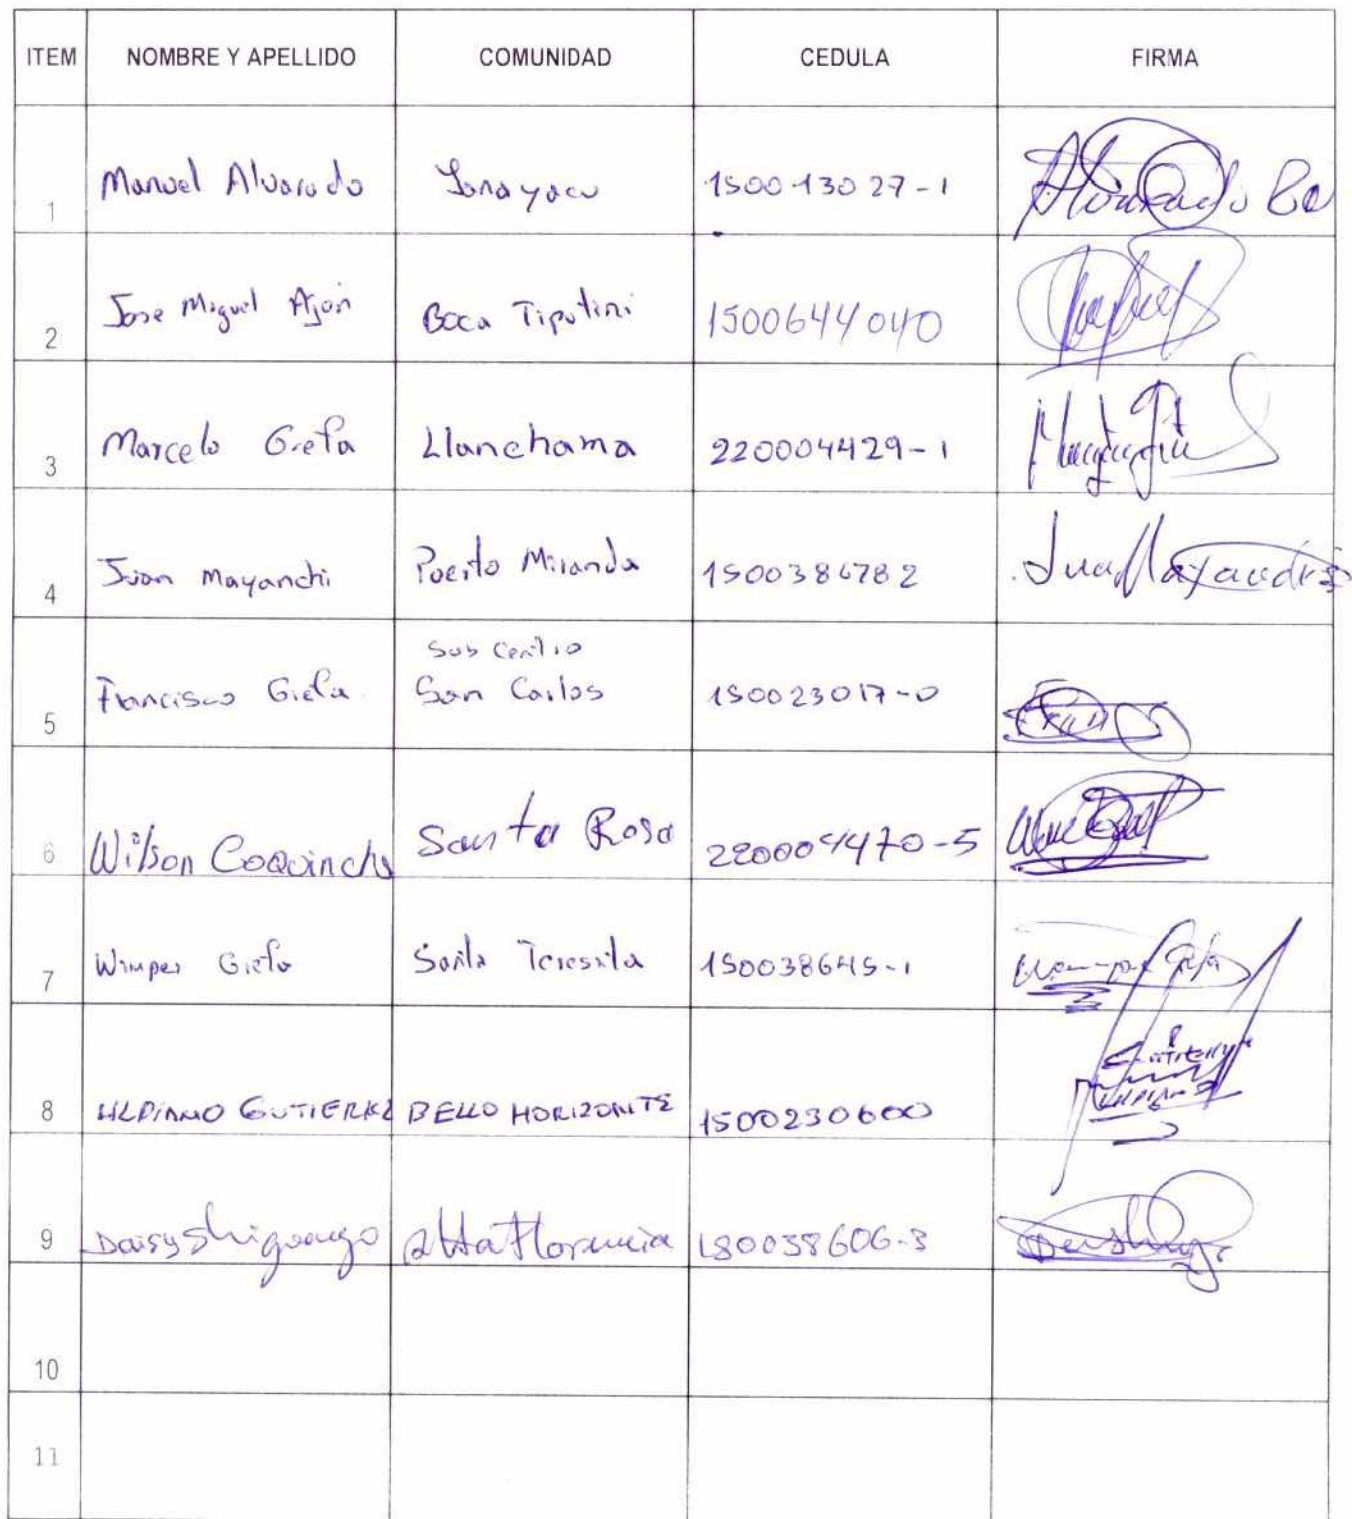 ITEM NOMBRE Y APELLIDO COMUNIDAD CEDULA FIRMA
1 Manuel Alvarado Yanayacu 150013027-1
2 Jose Miguel Ajon Boca Tiputini 1500644040
3 Marcelo Grefa Llanchama 220004429-1
4 Juan Mayanchi Puerto Miranda 1500386782
Sub Centro
5 Francisco Grefa San Carlos 150023017-0
6 Wilson Coquinche Santa Rosa 220004470-5
7 Wimper Grefa Santa Teresita 150038645-1
8 ULPIANO GUTIERREZ BELLO HORIZONTE 1500230600
9 Daisy Shiguango Alta Florencia 150038606-3
10
11